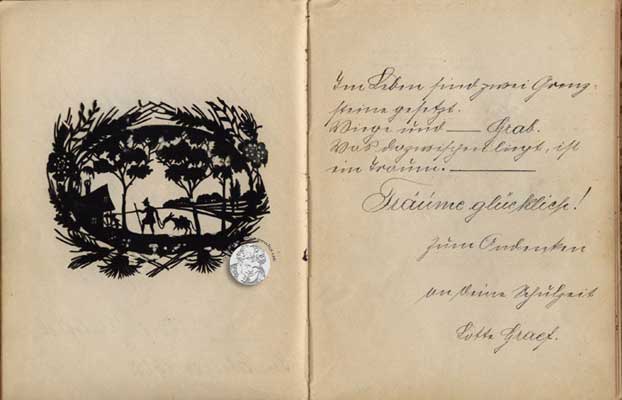 Im Leben sind zwei Grenz-
steine gesetzt.
Wiege und — Grab.
Was dazwischen liegt, ist
ein Traum. —
Träume glücklich!
Zum Andenken
an deine Schulzeit
Lotte Graef.